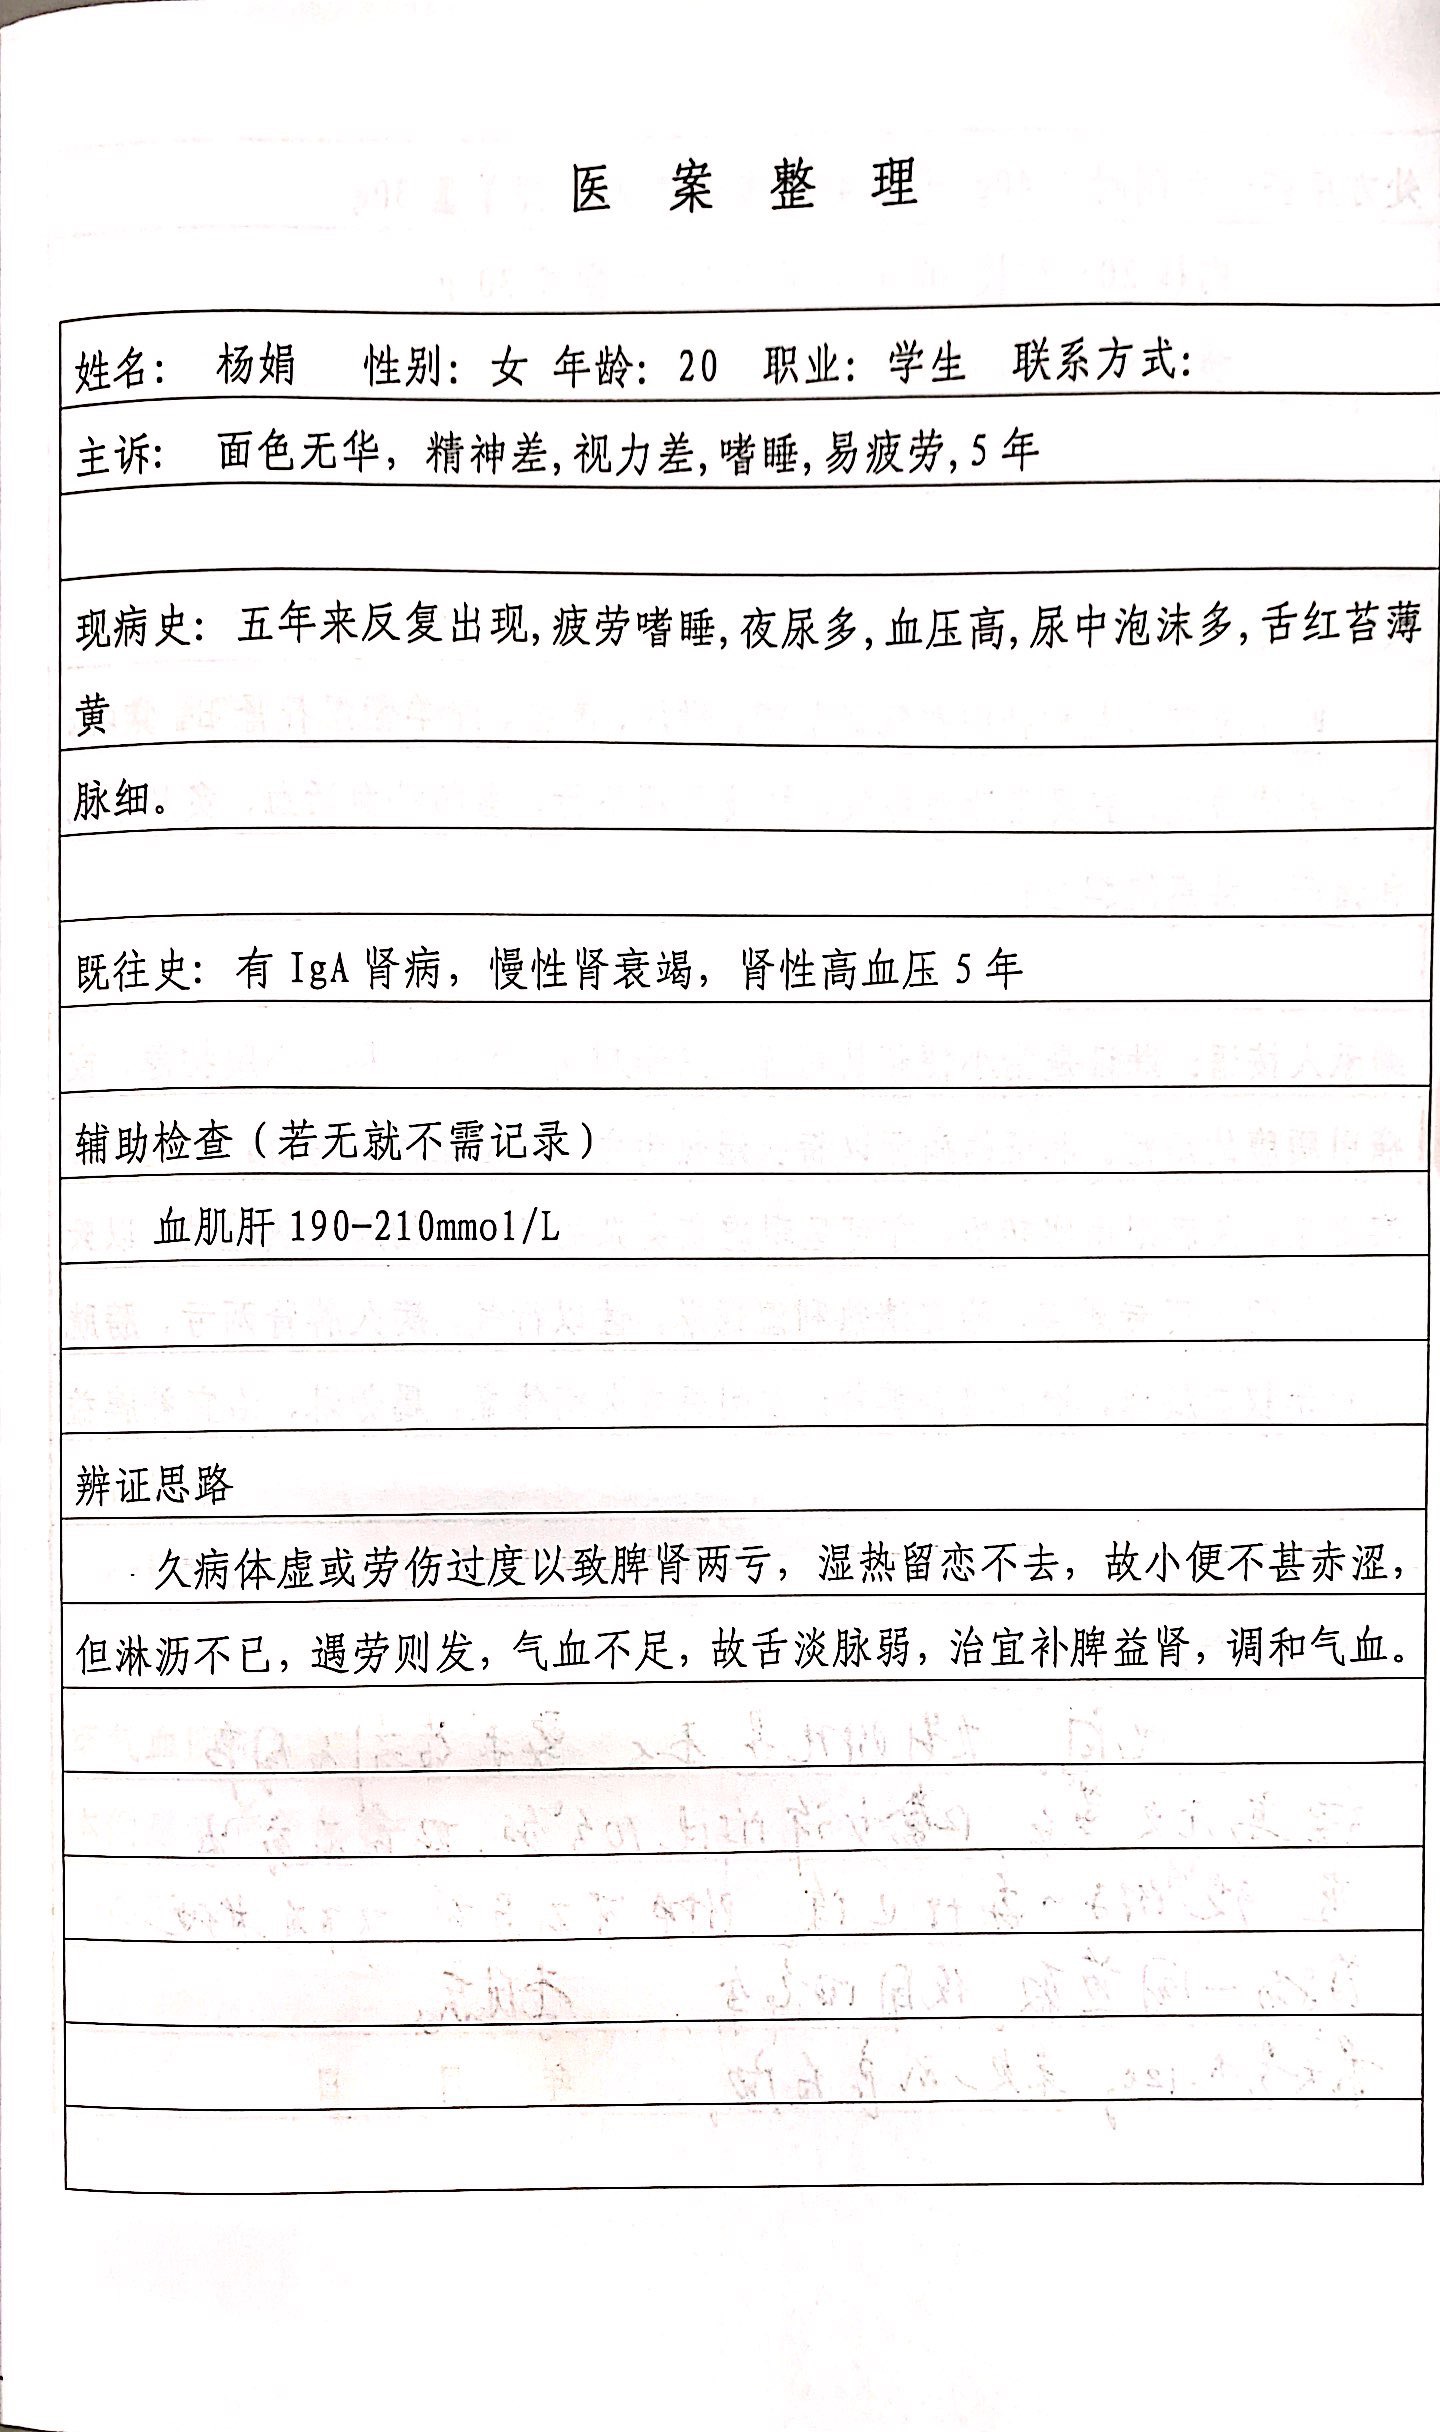 医 案 整 理
姓名： 杨娟 性别：女 年龄：20 职业：学生 联系方式：
主诉： 面色无华，精神差,视力差,嗜睡,易疲劳,5 年
现病史： 五年来反复出现,疲劳嗜睡,夜尿多,血压高,尿中泡沫多,舌红苔薄
黄
脉细。
既往史：有 IgA 肾病，慢性肾衰竭，肾性高血压 5 年
辅助检查（若无就不需记录）
血肌肝 190-210mmol/L
辨证思路
久病体虚或劳伤过度以致脾肾两亏，湿热留恋不去，故小便不甚赤涩，
但淋沥不已，遇劳则发，气血不足，故舌淡脉弱，治宜补脾益肾，调和气血。